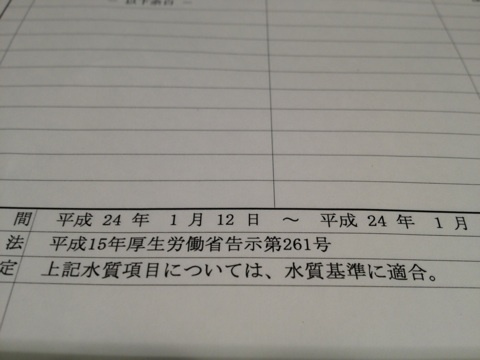 － 以下余白 －
間 平成 24 年 1 月 12 日 ～ 平成 24 年 1 月
法 平成15年厚生労働省告示第261号
定 上記水質項目については、水質基準に適合。